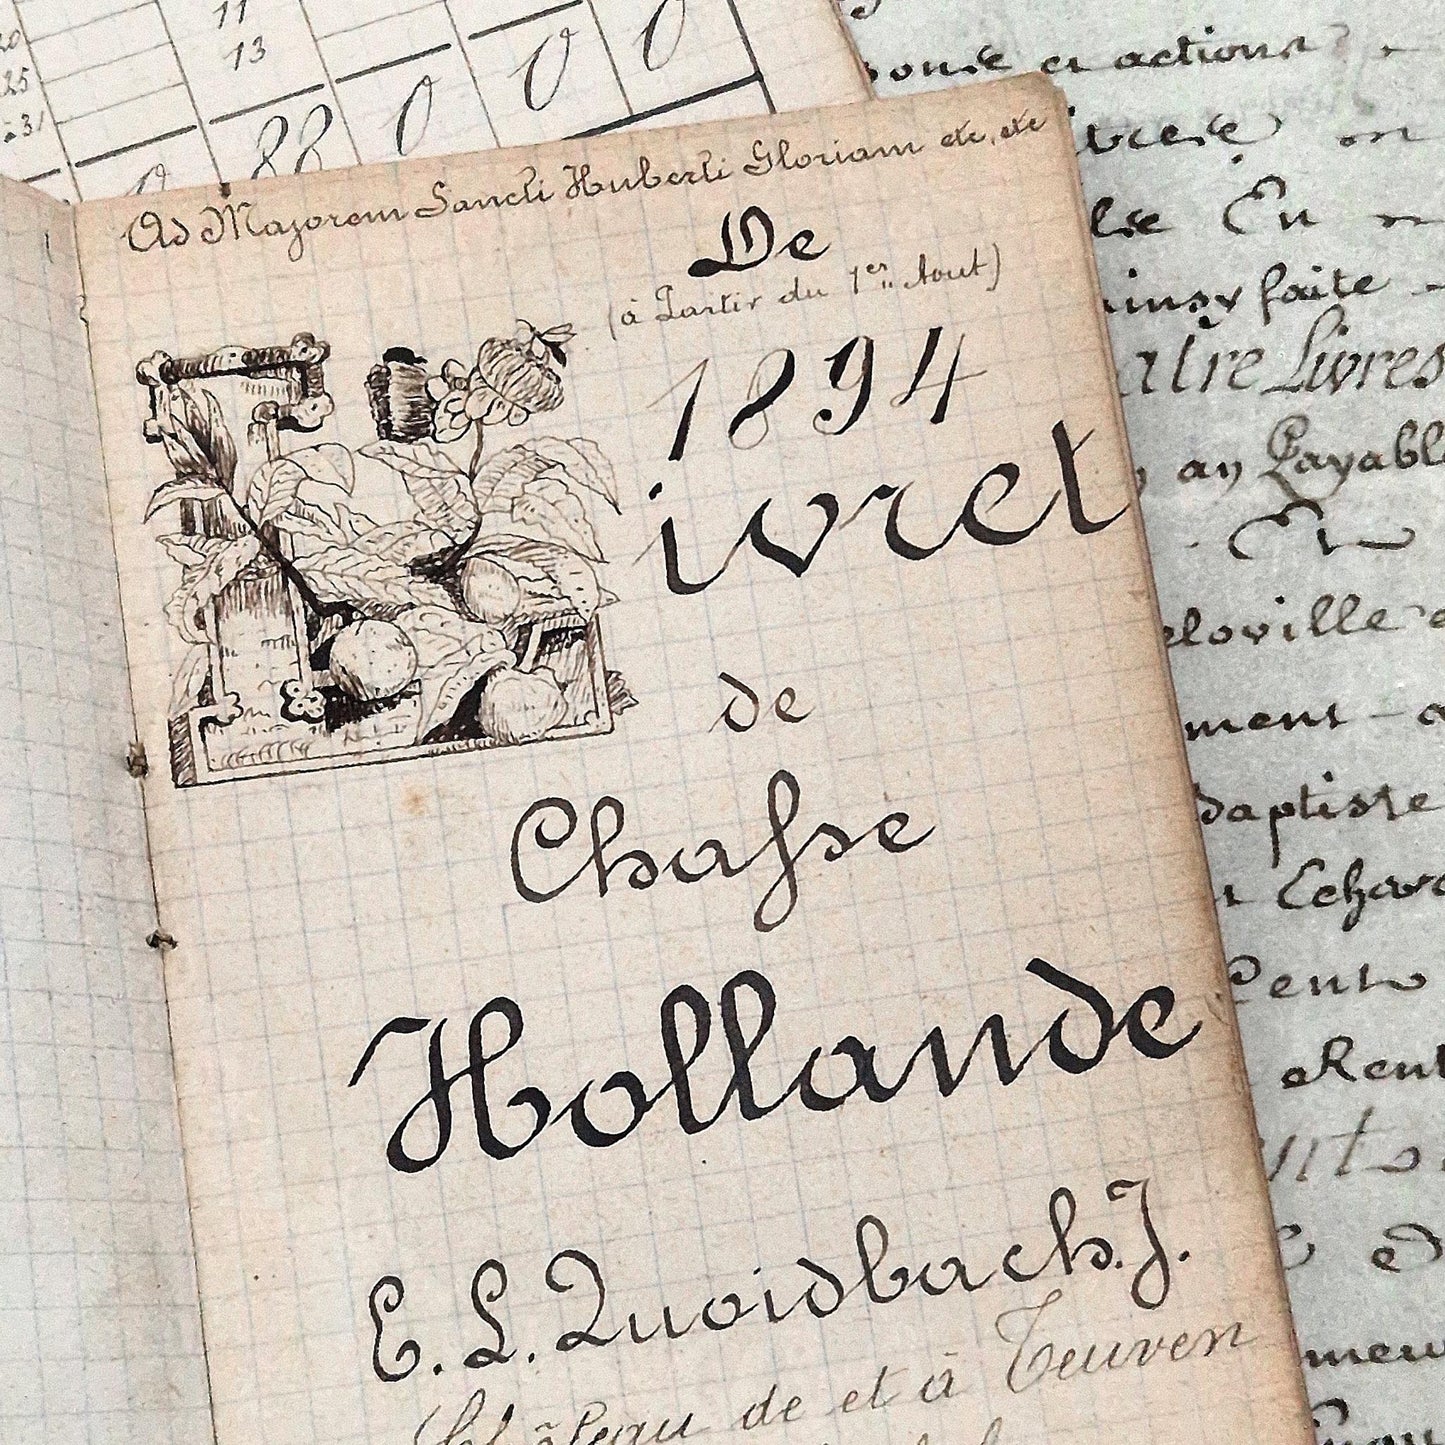 11
20 13
25
à 31
0 88 0 0 0
Ad Majorem Sancti Huberti Gloriam etc, etc
De
(à Partir du 1er Aout)
1894
Livret
de
Chasse
Hollande
E. L. Quoidbach. J.
Château de et à Teuven
et actions
En
ainsy faite
Livres
an Payable
En
eloville
ment
baptiste
Cent
Rent